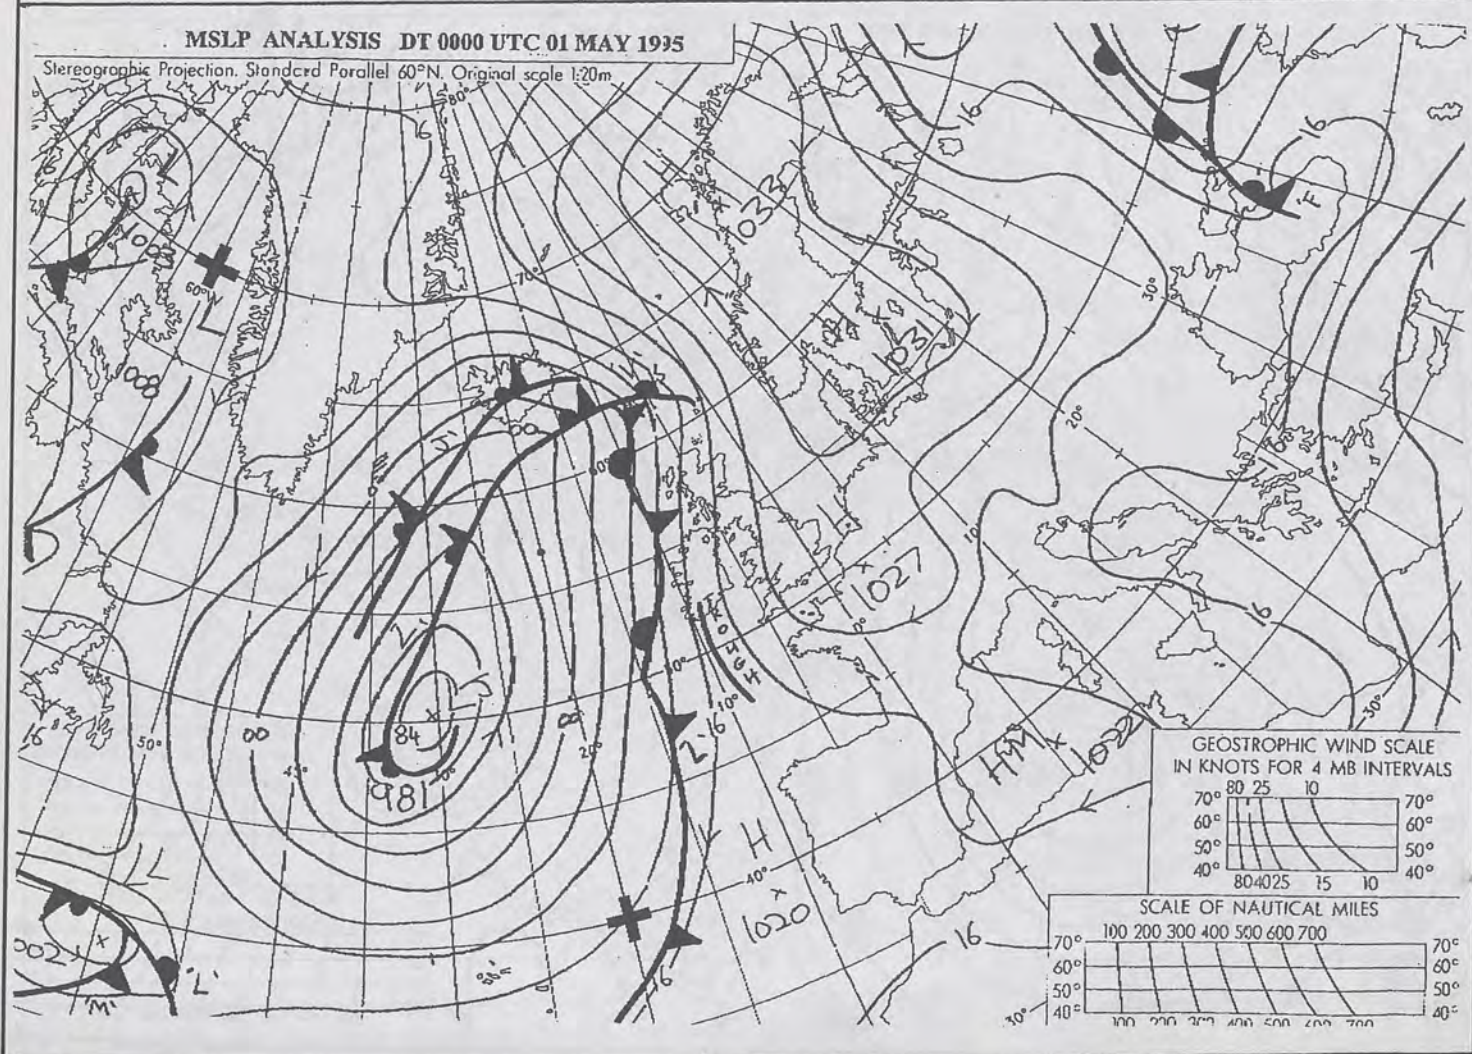 MSLP ANALYSIS DT 0000 UTC 01 MAY 1995
Stereographic Projection. Standard Parallel 60°N. Original scale 1:20m
80°
16
16
L
1008
H
1033
'F'
60°N
L
70°
30°
H
1031
1008
20°
'J'
00
60°
H
10°
1027
16
0°
TROUGH
L
50°
10°
16
00
84
00
20°
'Z'
16
50°
45°
981
HM
1022
30°
H
40°
1020
L
002
'L'
'M'
16
16
30°
GEOSTROPHIC WIND SCALE
IN KNOTS FOR 4 MB INTERVALS
80 25 10
70° 70°
60° 60°
50° 50°
40° 40°
80 40 25 15 10
SCALE OF NAUTICAL MILES
100 200 300 400 500 600 700
70° 70°
60° 60°
50° 50°
40° 40°
100 200 300 400 500 600 700